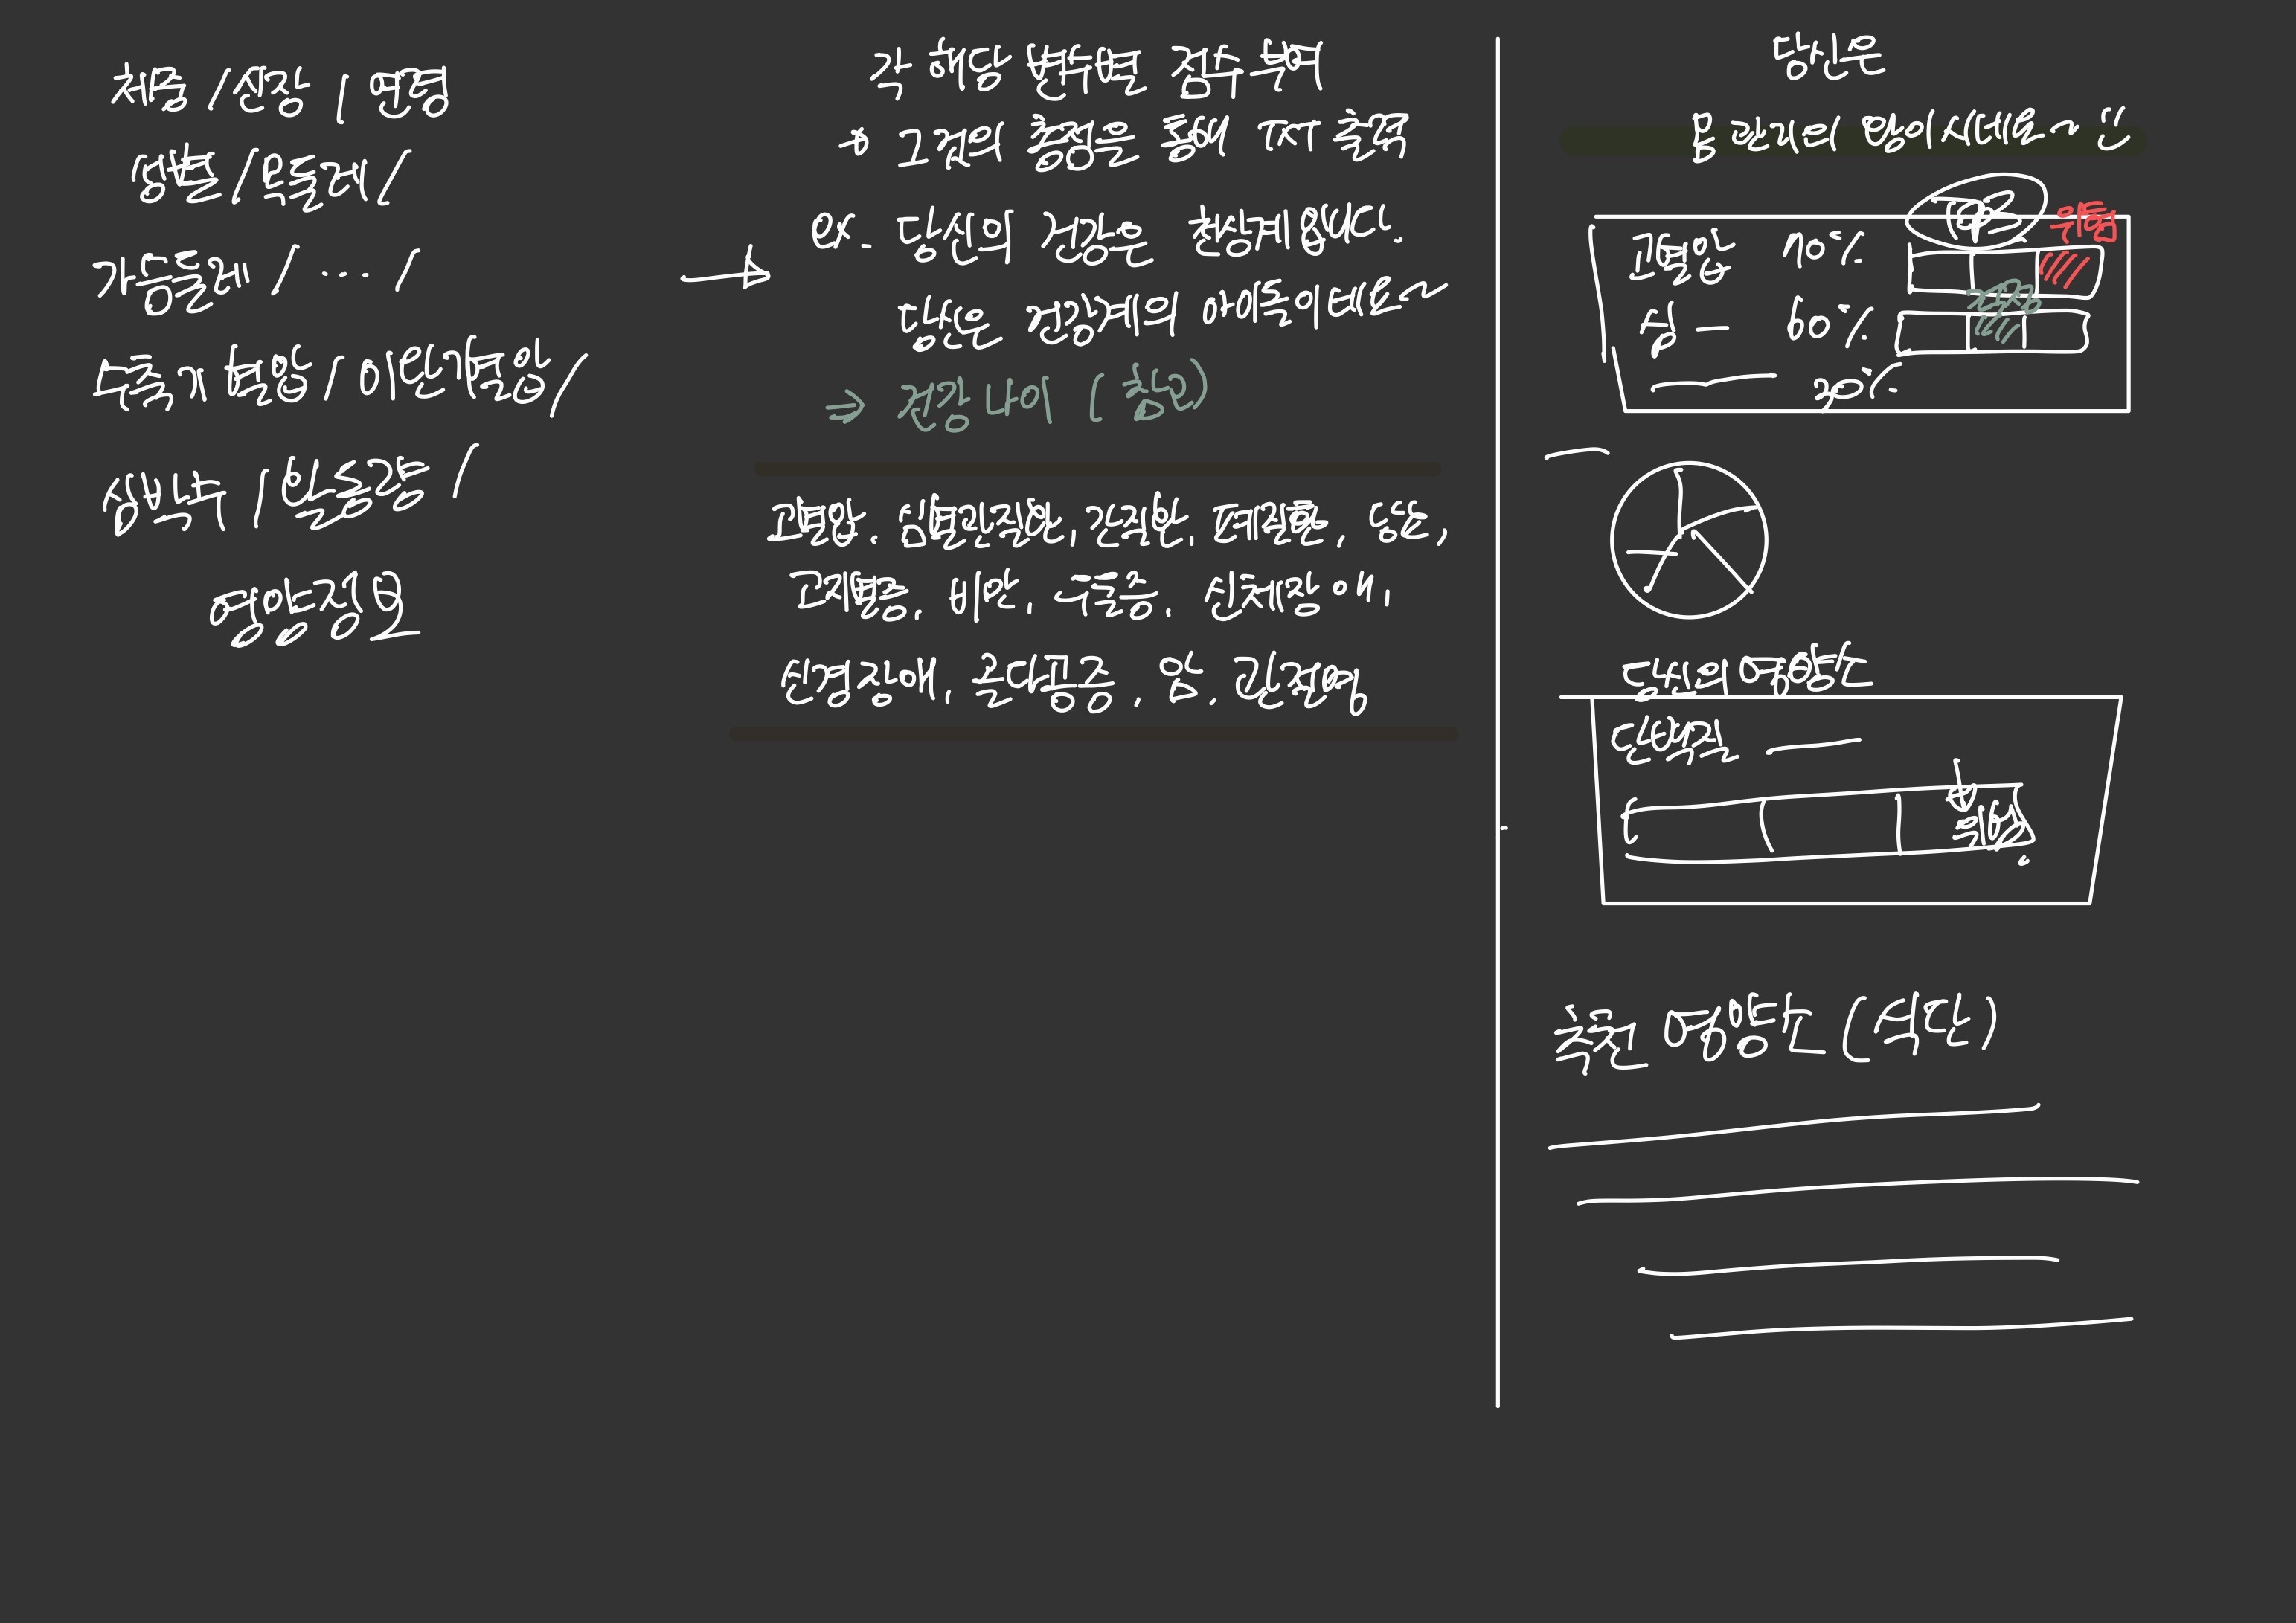 체중 / 신장 / 연령
성별 / 목둘레 /
가슴둘레 / ... /
수축기 혈압 / 이완기혈압 /
심박수 / 활동량 /
영양정보
각 해당 변수별 점수 부여
→ 그것의 총점을 통해 TXT 출력
ex. 당신의 건강은 환상계입니다.
당신은 건강계의 아이돌이네요~
⇒ 건강나이 (참고)
고혈압, 심혈관질환, 간질환, 폐질환, 당뇨,
고지혈증, 비만, 우울증, 신체장애,
신경장애, 골다공증, 암, 관절염
당신은
몸 관리의 왕이시네요~
고혈압 70%
위험
60%
20%
당신의 영양소
단백질
위험
추천 영양소 (식단)